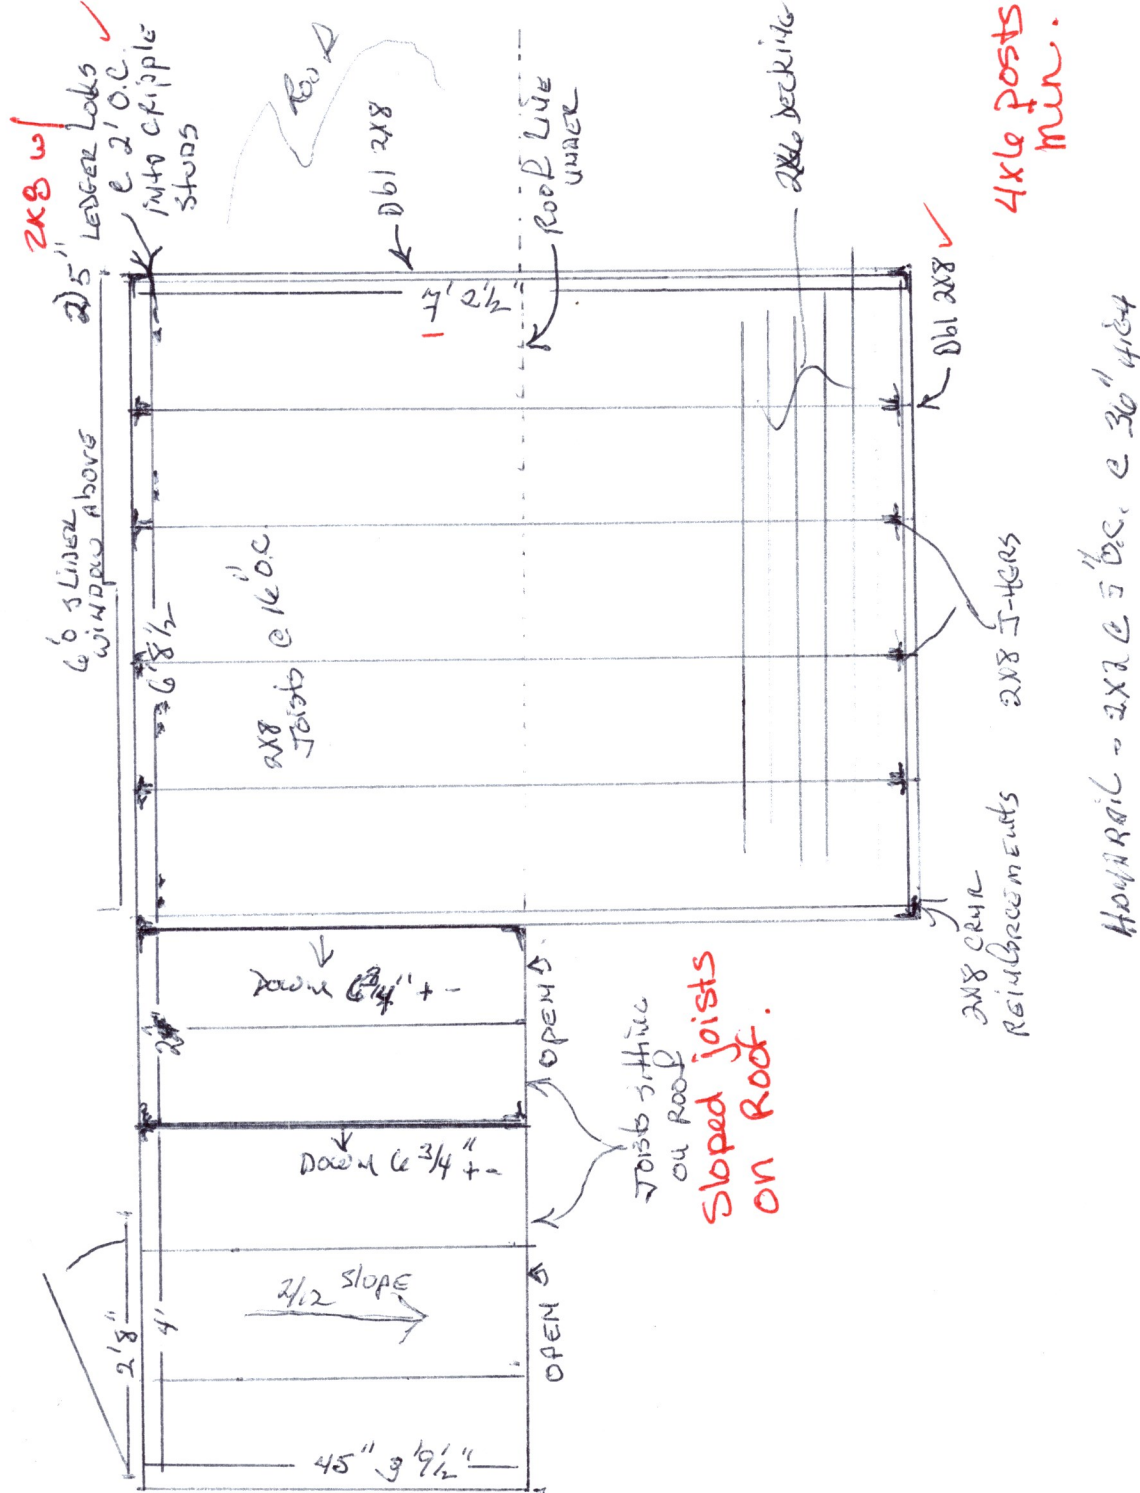 2x8 w/
2) 5" LEDGER Loks
@ 2' O.C.
INTO CRIPPLE
STUDS
ROOF
Dbl 2x8
ROOF LINE
UNDER
2x6 DECKING
4x6 posts
min.
6'0 SLIDER
WINDOW Above
6' 8 1/2
7' 2 1/2"
2x8
Joists @ 16" O.C
Dbl 2x8
2x8 J-HGRS
2x8 CRNR
REINFORCEMENTS
HANDRAIL - 2x2 @ 5" O.C. @ 36" HIGH
2'
DOWN 6 3/4" + -
OPEN
DOWN 6 3/4" + -
Joists sitting
on ROOF
Sloped joists
on ROOF.
2'8"
4'
2/12 SLOPE
OPEN
45" 3' 9 1/2"